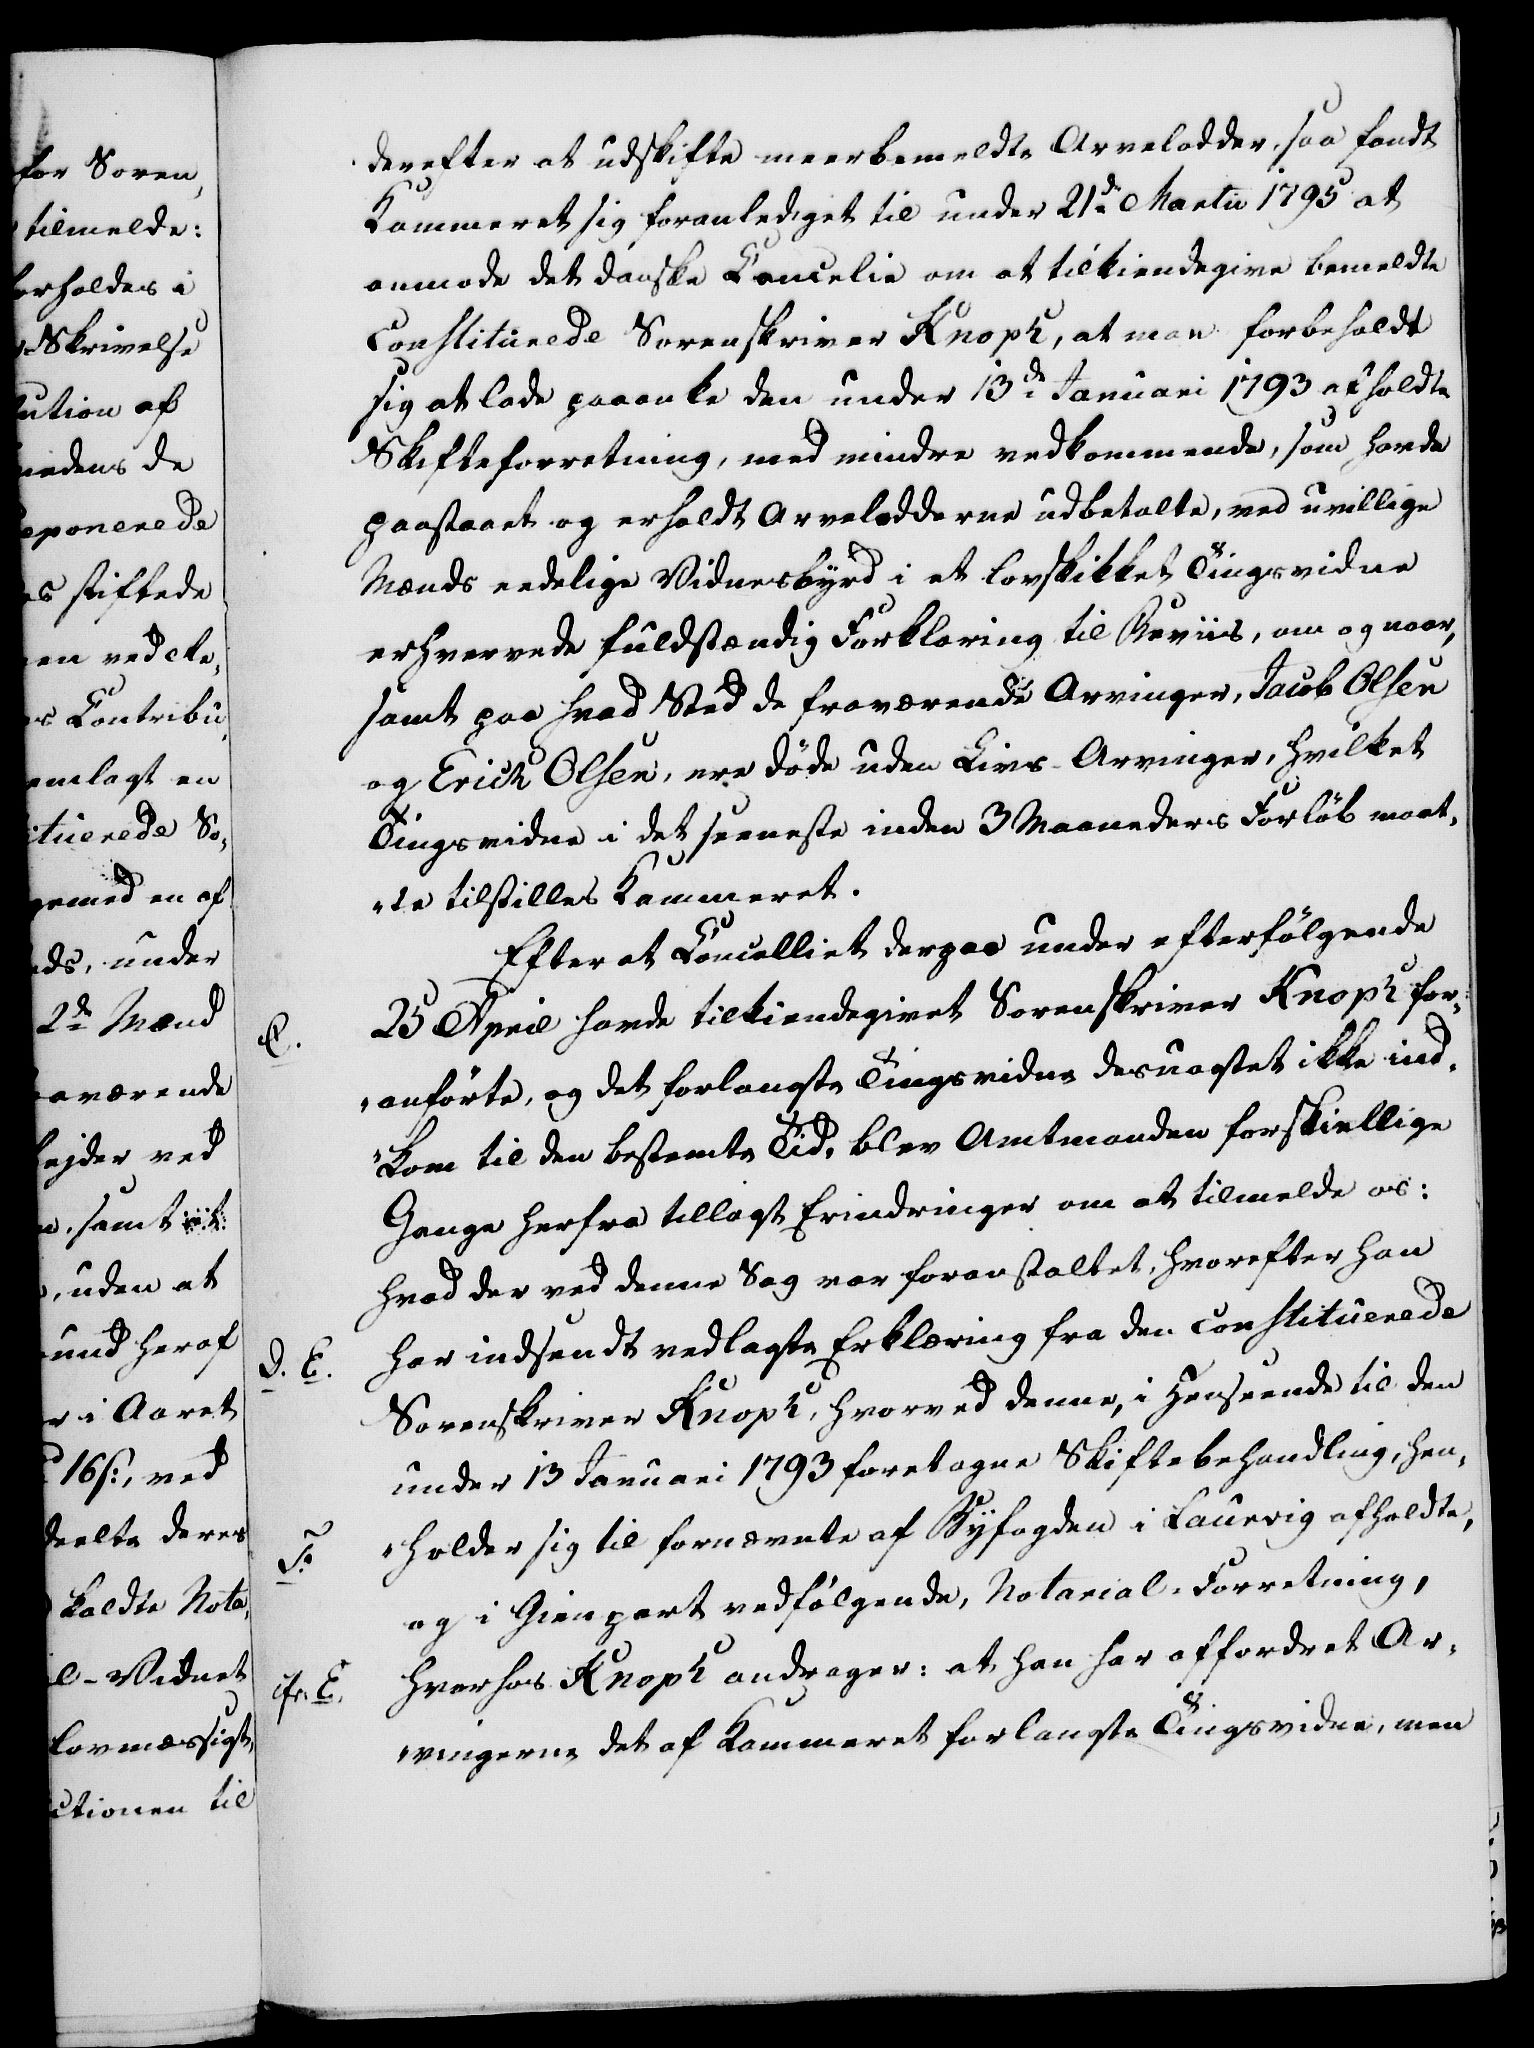 for Soren,
tilmelde:
erholdes i
Skrivelse
ution af
medens de
eponerede
es stiftede
en ved ete,
es Contribu,
emlagt en
ituerede So,
gemed en af
eds, under
2de Mænd
aværende
ejder ved
n, samt
, uden at
und heraf
r i Aaret
16 s:, ved
deelte deres
kaldte Nota,
l-Vidnet
lovmæssigt,
ctionen til
derefter at udskifte meerbemeldte Arvelodder, saa fandt
Kammeret sig foranlediget til under 21de Martii 1795 at
anmode det danske Cancelie om at tilkiendegive bemeldte
constituerede Sorenskriver Knoph, at man forbeholdt
sig at lade paaanke den under 13de Januari 1793 afholdte
Skifteforretning, med mindre vedkommende, som havde
paastaaet og erholdt Arvelodderne udbetalte, ved uvillige
Mænds eedelige Vidnesbyrd i et lovskikket Tingsvidne
erhvervede fuldstændig Forklaring til Beviis, om og naar,
samt paa hvad Sted de fraværende Arvinger, Jacob Olsen
og Erich Olsen, ere döde uden Livs-Arvinger, hvilket
Tingsvidne i det seeneste inden 3 Maaneders Forlöb maat,
„te tilstilles Kammeret.
Efter at Cancelliet derpaa under efterfölgende
C. 25 April havde tilkiendegivet Sorenskriver Knoph for,
„anförte, og det forlangte Tingsvidne desuagtet ikke ind,
„kom til den bestemte Tid, blev Amtmanden forskiellige
Gange herfra tillagt Erindringer om at tilmelde os:
hvad der ved denne Sag var foranstaltet, hvorefter han
D. E. har indsendt vedlagte Erklæring fra den constituerede
Sorenskriver Knoph, hvorved denne, i Henseende til den
under 13 Januari 1793 foretagne Skiftebehandling, hen,
F. „holder sig til fornævnte af Byfogden i Laurvig afholdte,
og i Gienpart vedfölgende, Notarial-Forretning,
cfr. E. hvorhos Knoph andrager: at han har affordret Ar,
„vingerne det af Kammeret forlangte Tingsvidne, men